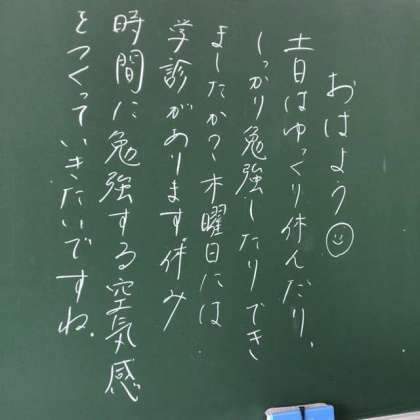 おはよう☺
土日はゆっくり休んだり、
しっかり勉強したりでき
ましたか？木曜日には
学診があります休み
時間に勉強する空気感
をつくっていきたいですね.